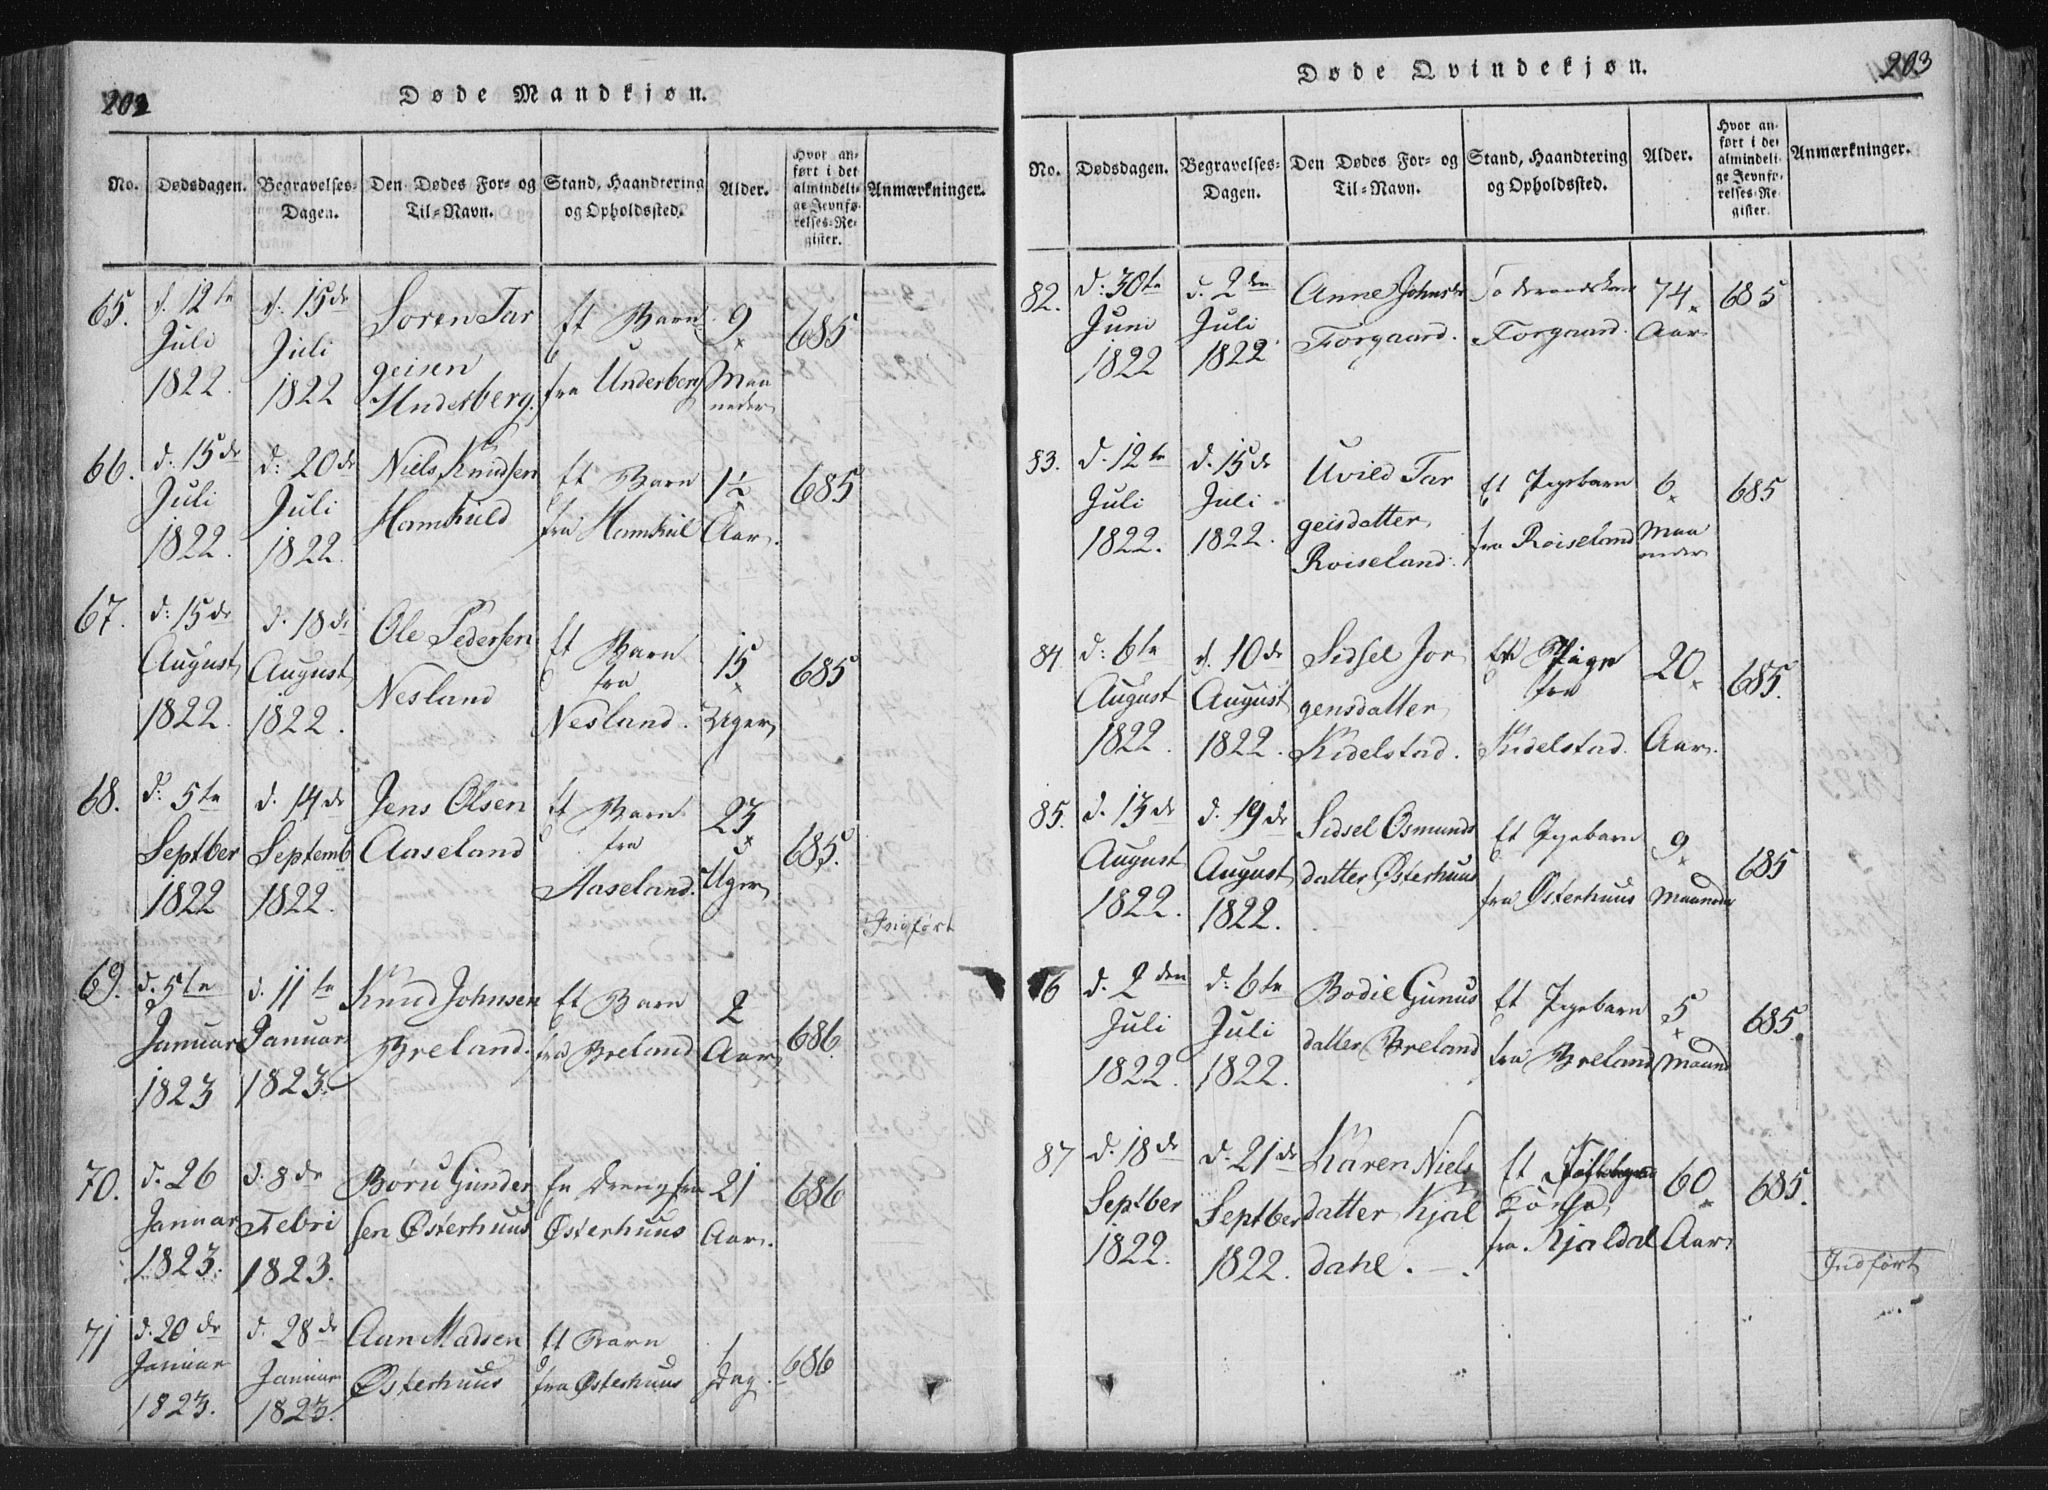 202
Døde Mandkjøn.
No.
Dødsdagen.
Begravelses-
Dagen.
Den Dødes For- og
Til-Navn.
Stand, Haandtering
og Opholdssted.
Alder.
Hvor an-
ført i det
almindeli-
ge Jevnfø-
relses-Re-
gister.
Anmærkninger.
65.
d. 12te
Juli
1822.
d. 15de
Juli
1822
Soren Tar
geisen
Underberg.
Et Barn
fra Underberg
9
Maa
neder
685
66.
d: 15de
Juli
1822.
d: 20de
Juli
1822.
Niels Knudsen
Homkuld
Et Barn
fra Homkul
1½
Aar.
685
67.
d: 15de
August
1822.
d. 18de
August
1822.
Ole Pedersen
Nesland
Et Barn
fra
Nesland.
15
Uger
685
68.
d: 5te
Septber
1822
d. 14de
Septemb
1822.
Jens Olsen
Aaseland
Et Barn
fra
Aaseland.
23
Uger
685.
Indført
69.
d. 5te
Januar
1823
d. 11te
Januar
1823.
Knud Johnsen
Breland.
Et Barn
fra Breland
2
Aar
686.
70.
d. 26
Januar
1823.
d. 8de
Febri
1823.
Böru Gunder
sen Østerhuus
En Dreng fra
Østerhuus
21
Aar.
686
71
d. 20de
Januar
1823.
d. 28de
Januar
1823.
Aun Madsen
Østerhuus
Et Barn
fra Østerhuus
1
Dag.
686
203
Døde Qvindekjøn.
No.
Dødsdagen.
Begravelses-
Dagen.
Den Dødes For- og
Til-Navn.
Stand, Haandtering
og Opholdssted.
Alder.
Hvor an-
ført i det
almindeli-
ge Jevnfø-
relses-Re-
gister.
Anmærkninger.
82.
d: 30te
Juni
1822
d. 2den
Juli
1822
Anne Johnsdr
Torgaard.
Torgaard.
74
Aar
685
83.
d. 12te
Juli
1822.
d. 15de
Juli
1822.
Uvild Tar
geisdatter
Roiseland.
Et Pigebarn
fra Roiseland
6
Maa
neder
685
84
d: 6te
August
1822.
d. 10de
August
1822.
Sidsel Jor
gensdatter
Kidelstad.
En Pige
fra
Kidelstad.
20
Aar.
685.
85.
d. 13de
August
1822.
d. 19de
August
1822.
Sidsel Osmunds
datter Østerhuus
Et Pigebarn
fra Østerhuus
9
Maaneder
685
86
d. 2den
Juli
1822.
d: 6te
Juli
1822.
Bodil Gunus
datter Breland
Et Pigebarn
fra Breland
5
Maand
685.
87
d. 18de
Septber
1822.
d. 21de
Septber
1822.
Karen Niels
datter Kjal
dahl.
Et
fra Kjaldal
60
Aar
685.
Indført